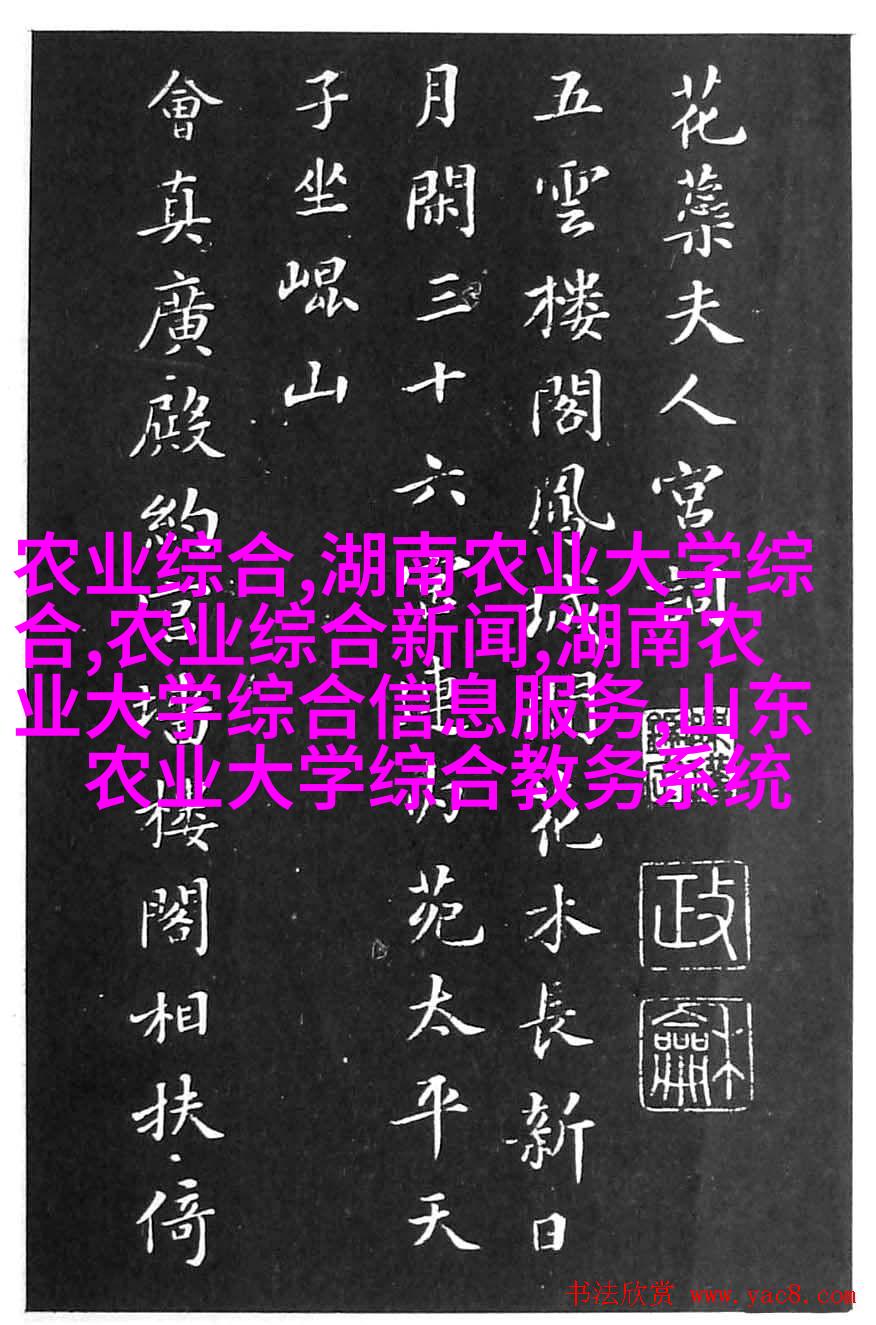 花蘂夫人宮詞
政
龢
五雲楼閣鳳城間花水長新日
月閑三十六宮連内苑太平天
子坐崐山
會真廣殿約宮墻楼閣相扶倚
农业综合,湖南农业大学综
合,农业综合新闻,湖南农
业大学综合信息服务,山东
农业大学综合教务系统
书法欣赏 www.yac8.com